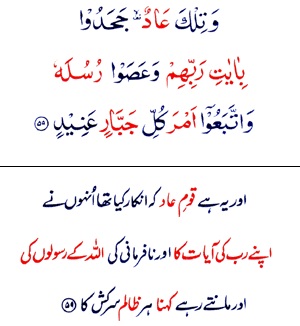 وَتِلْكَ عَادٌ ۟ۙ جَحَدُوْا
بِاٰيٰتِ رَبِّهِمْ وَعَصَوْا رُسُلَهٗ
وَاتَّبَعُوْۤا اَمْرَ كُلِّ جَبَّارٍ عَنِيْدٍ ۵۹
اور یہ ہے قومِ عاد کہ انکار کیا تھا اُنہوں نے
اپنے رب کی آیات کا اور نافرمانی کی اللہ کے رسولوں کی
اور مانتے رہے کہنا ہر ظالم سرکش کا ۵۹